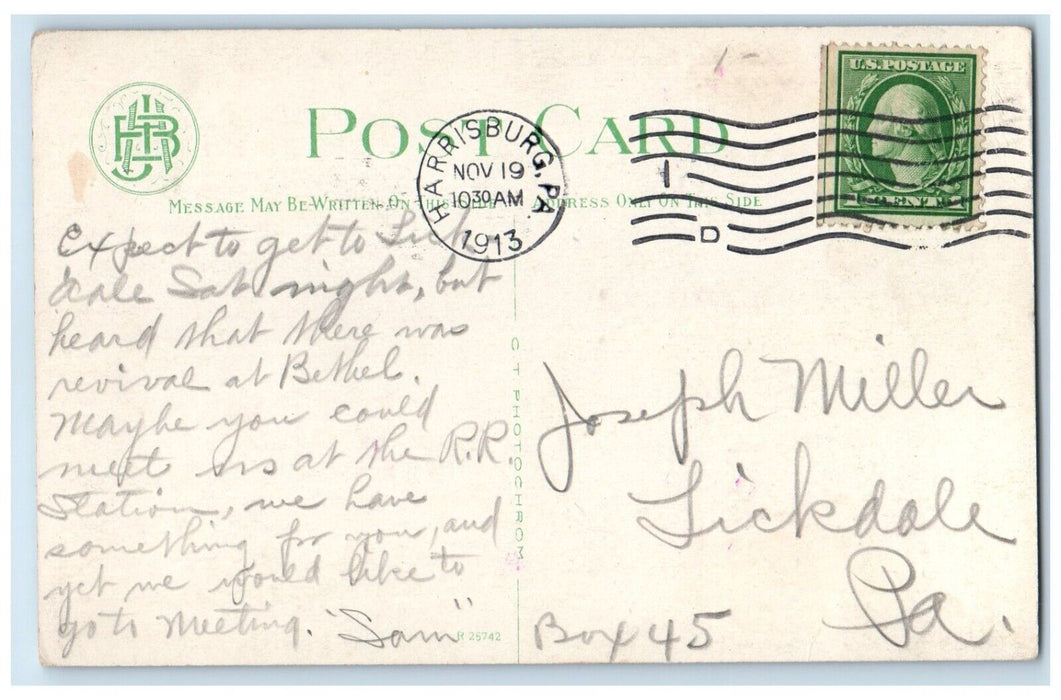 POST CARD
MESSAGE MAY BE WRITTEN ON THIS SIDE ADDRESS ONLY ON THIS SIDE
HARRISBURG, PA
NOV 19
10 30 AM
1913
1
D
U.S. POSTAGE
Expect to get to Lick
dale Sat. night, but
heard that there was
revival at Bethel.
Maybe you could
meet us at the R.R.
Station, we have
something for you, and
yet we would like to
go to meeting. "Sam"
R 25742
C T PHOTOCHROM
Joseph Miller
Lickdale
Pa.
Box 45